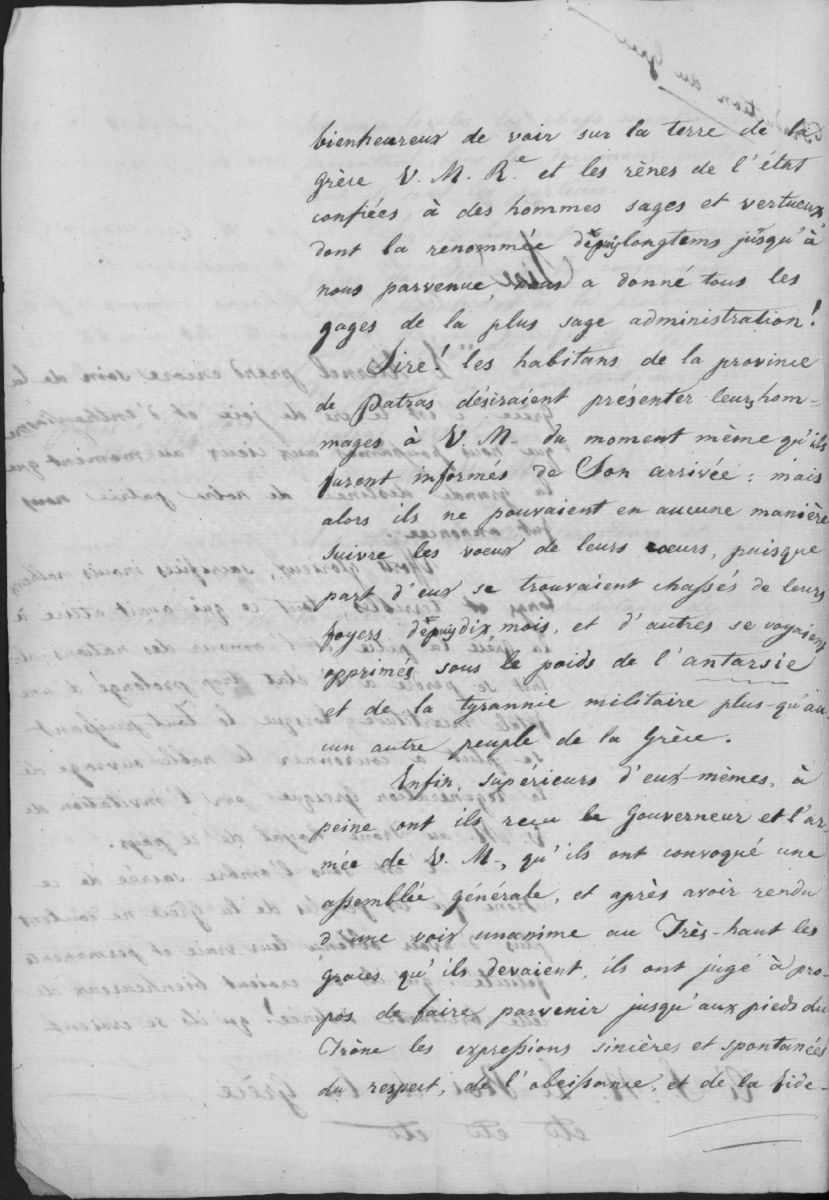 bienheureux de voir sur la terre de la
Grèce V. M. Re et les rènes de l'état
confiées à des hommes sages et vertueux
dont la renommée depuis longtems jusqu'à
nous parvenue, nous a donné tous les
gages de la plus sage administration!
Sire! les habitans de la province
de Patras désiraient présenter leurs hom-
mages à V. M. du moment même qu'ils
furent informés de Son arrivée; mais
alors ils ne pouvaient en aucune manière
suivre les voeux de leurs coeurs, puisque
part d'eux se trouvaient chassés de leurs
foyers depuis dix mois, et d'autres se voyaient
opprimés sous le poids de l'antarsie
et de la tyrannie militaire plus-qu'au-
cun autre peuple de la Grèce.
Enfin, supérieurs d'eux-mêmes, à
peine ont ils reçu le Gouverneur et l'ar
mée de V. M., qu'ils ont convoqué une
assemblée générale, et après avoir rendu
d'une voix unanime au Très-haut les
graces qu'ils devaient, ils ont jugé à pro-
pos de faire parvenir jusqu'aux pieds du
Trône les expressions sincères et spontanées
du respect, de l'obeissance, et de la fidé-